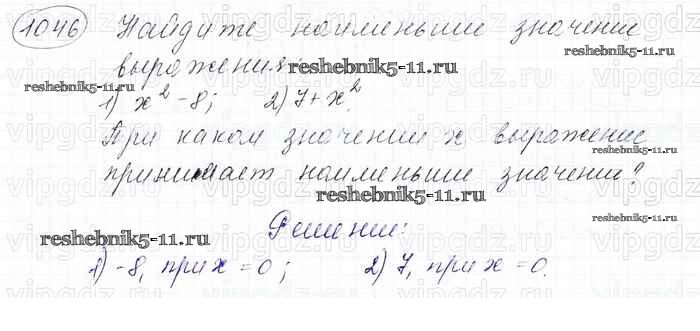 1046 Найдите наименьши значение
выражения: reshebnik5-11.ru
reshebnik5-11.ru
1) x² - 8; 2) 7 + x².
При каком значении x выражение
reshebnik5-11.ru
принимает наименьши значение?
reshebnik5-11.ru
Решение: reshebnik5-11.ru
reshebnik5-11.ru
1) -8, при x = 0; 2) 7, при x = 0.